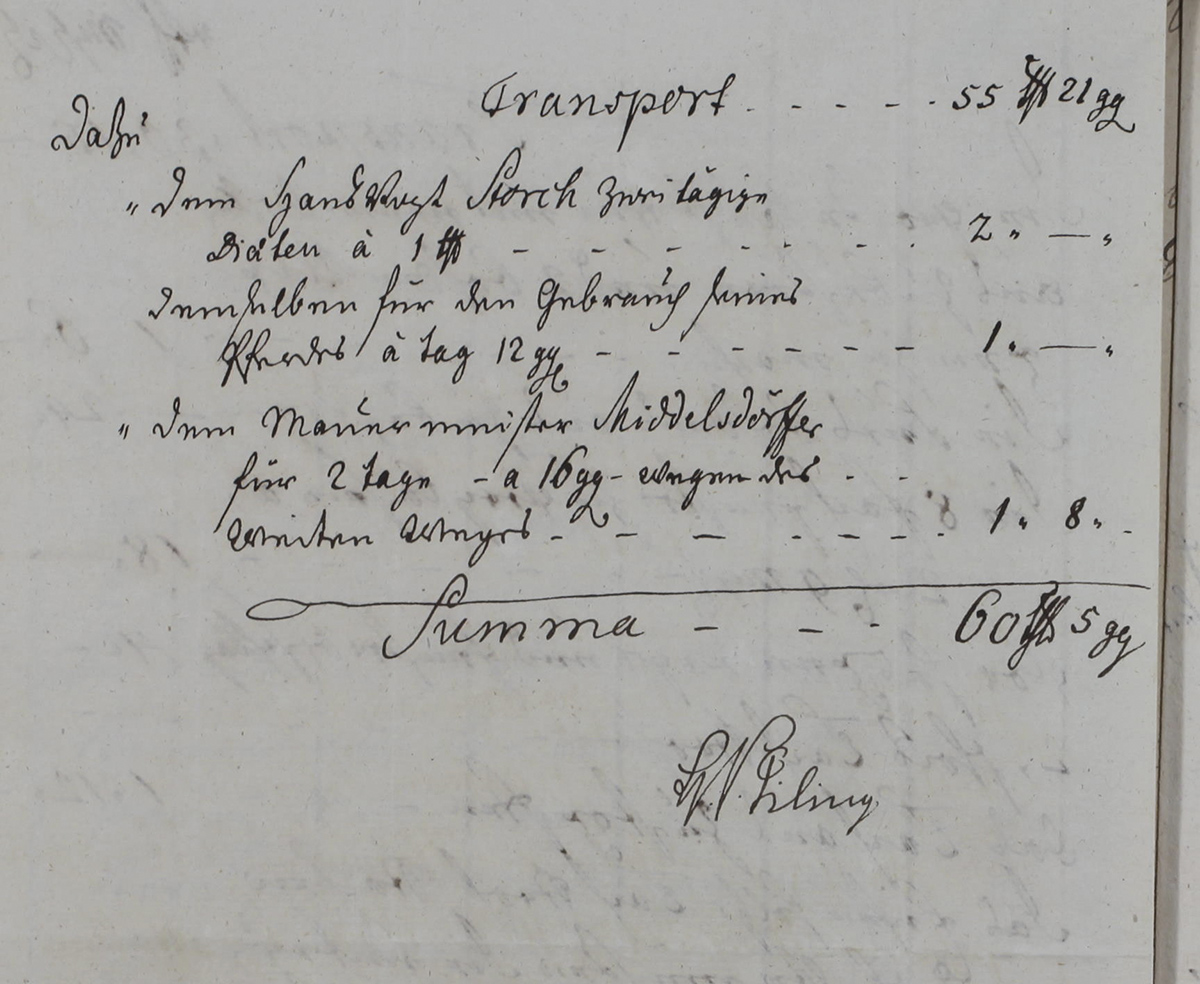 Transport - - - - - 55 rthl 21 ggl
Dazu
" dem HausVogt Storch zweitägige
Diäten à 1 rthl - - - - - - - 2 " — "
demselben für den Gebrauch seines
Pferdes à tag 12 ggl - - - - - - 1 " — "
" dem Mauermeister Middelsdörffer
für 2 tage - a 16 ggl - wegen des - -
Weiten Weges - - - - - - - 1 " 8 " -
Summa - - - 60 rthl 5 ggl
Tiling